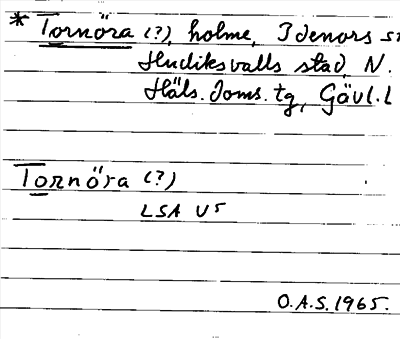 * Tornöra (?), holme, Idenors s
Hudiksvalls stad, N.
Häls. doms. tg, Gävl. l
Tornöra (?)
LSA U5
O.A.S. 1965.